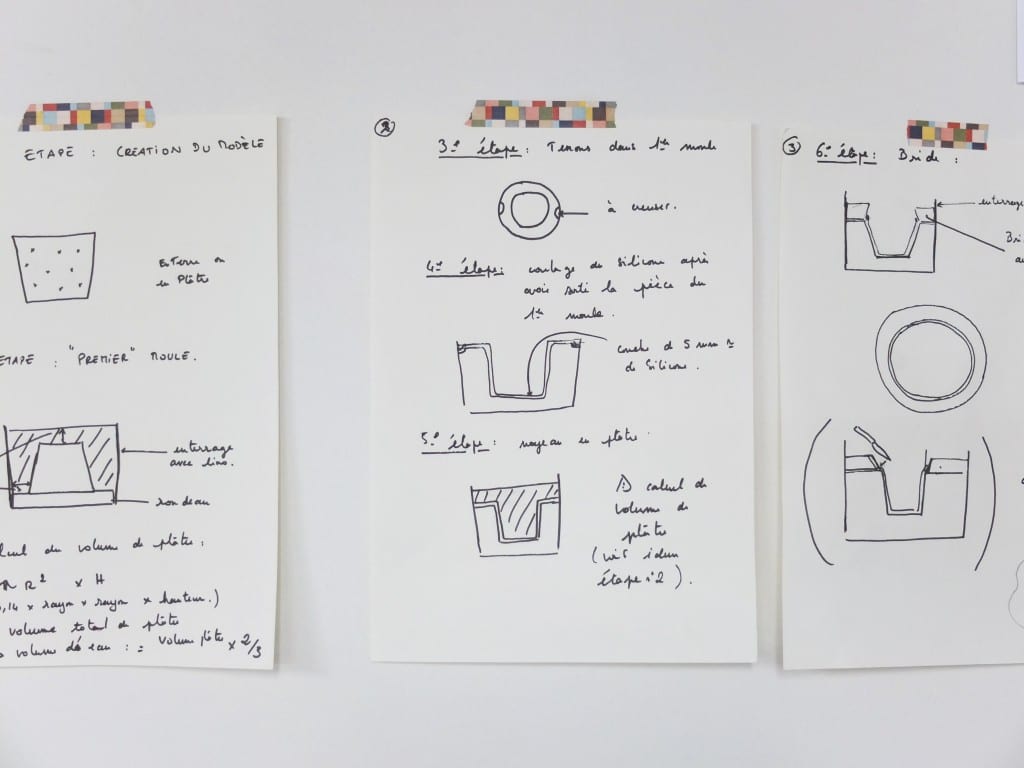 ETAPE : CRÉATION DU MODÈLE
En Terre ou
en Plâtre
ETAPE : "PREMIER" MOULE.
entourage
avec lino.
rondeau
calcul du volume de plâtre :
π R² x H
3,14 x rayon x rayon x hauteur.)
volume total de plâtre
volume d'eau : = volume plâtre x 2/3
2
3e étape : Tenons dans 1er moule
à creuser.
4e étape : coulage du silicone après
avoir sorti la pièce du
1er moule.
couche de 5 mm
de Silicone.
5e étape : noyau en plâtre
⚠ calcul du
volume de
plâtre
idem
étape n°2 ).
3
6e étape : Bride :
entourage